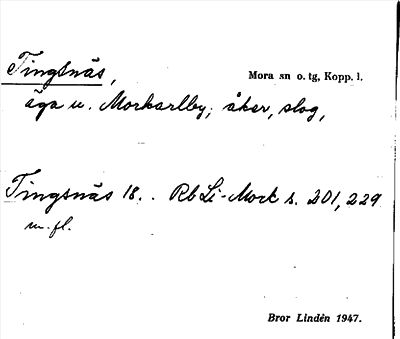 Tingsnäs,
Mora sn o. tg, Kopp. l.
äga u. Morkarlby; åker, slog,
Tingsnäs 18. . Rb Li-Mork s. 201, 229
m. fl.
Bror Lindén 1947.